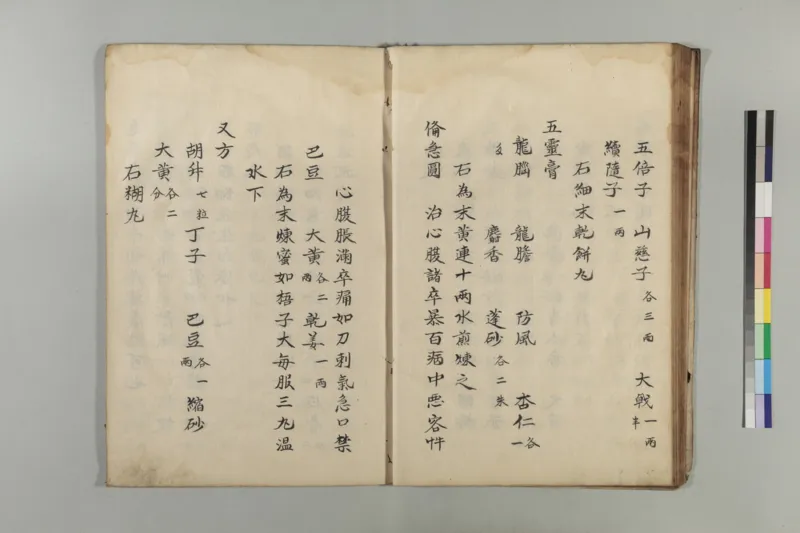 五倍子 山慈子 各三両 大戟 一両半
續隨子 一両
右細末乾餅丸
五靈膏
龍腦 龍膽 防風 杏仁 各一
麝香 蓬砂 各二朱
右為末黄連十兩水煎煉之
俻急圓 治心腹諸卒暴百病中悪客忤
心腹脹滿卒痛如刀刺氣急口禁
巴豆 大黄 各二両 乾姜 一両
右為末煉蜜如梧子大每服三丸温
水下
又方
胡舛 七粒 丁子 巴豆 各一両 縮砂
大黄 各二分
右糊丸